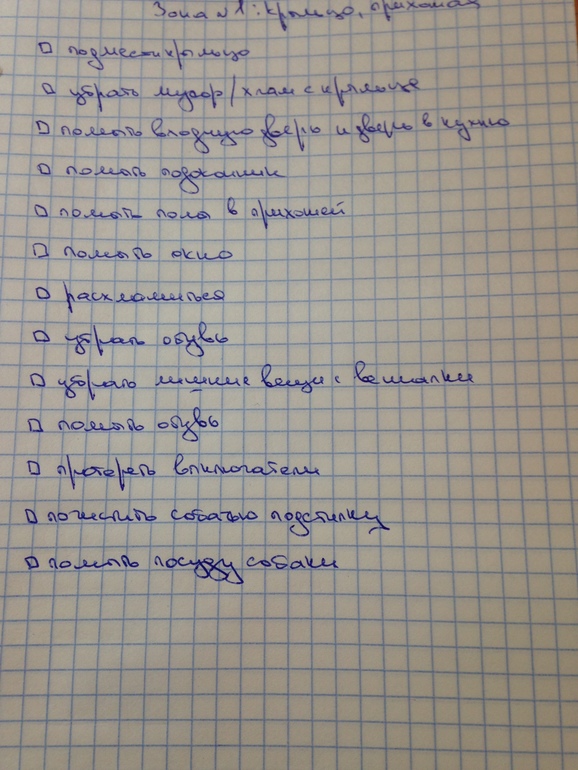 Зона №1: крыльцо, прихожая
подмести крыльцо
убрать мусор/хлам с крыльца
помыть входную дверь и дверь в кухню
помыть подоконник
помыть полы в прихожей
помыть окно
расхламиться
убрать обувь
убрать лишние вещи с вешалки
помыть обувь
протереть выключатели
почистить собачью подстилку
помыть посуду собаки